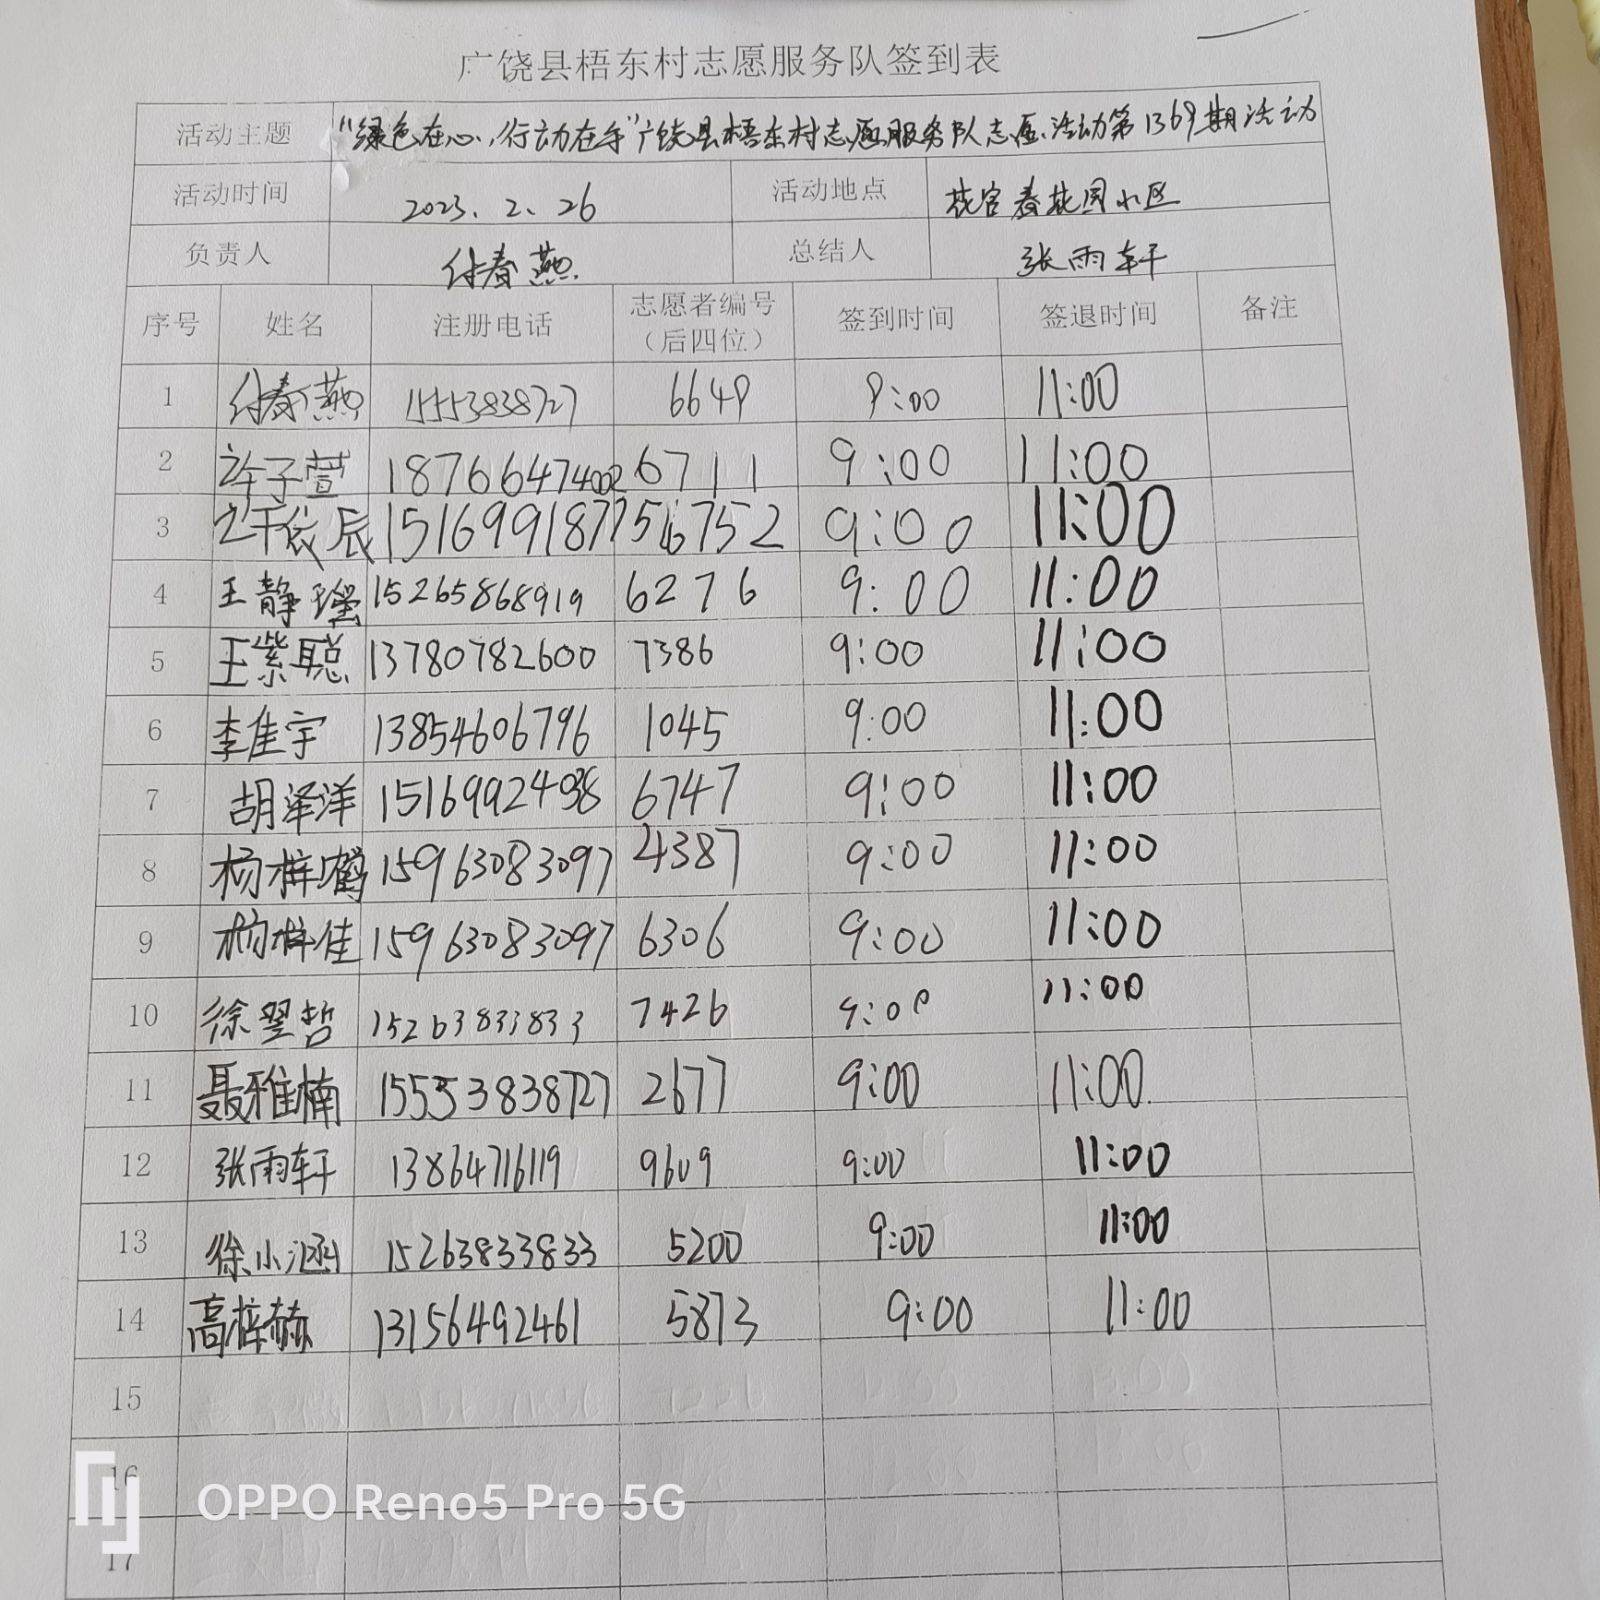 广饶县梧东村志愿服务队签到表
活动主题 “绿色在心,行动在手”广饶县梧东村志愿服务队志愿活动第1369期活动
活动时间 2023.2.26 活动地点 花官春花园小区
负责人 付春燕 总结人 张雨轩
序号 姓名 注册电话 志愿者编号（后四位） 签到时间 签退时间 备注
1 付春燕 15553838727 6649 9:00 11:00
2 许子萱 18766474002 6711 9:00 11:00
3 依辰 6752 9:00 11:00
4 王静瑶 15265868919 6276 9:00 11:00
5 王紫聪 13780782600 7386 9:00 11:00
6 李佳宇 13854606796 1045 9:00 11:00
7 胡泽洋 15169924938 6747 9:00 11:00
8 杨梓鹤 15963083097 4387 9:00 11:00
9 杨梓佳 15963083097 6306 9:00 11:00
10 徐翌哲 15263833833 7426 9:00 11:00
11 聂雅楠 15553838727 2677 9:00 11:00
12 张雨轩 13864716119 9609 9:00 11:00
13 徐小涵 15263833833 5200 9:00 11:00
14 高梓赫 13156492461 5873 9:00 11:00
15
16
17
OPPO Reno5 Pro 5G